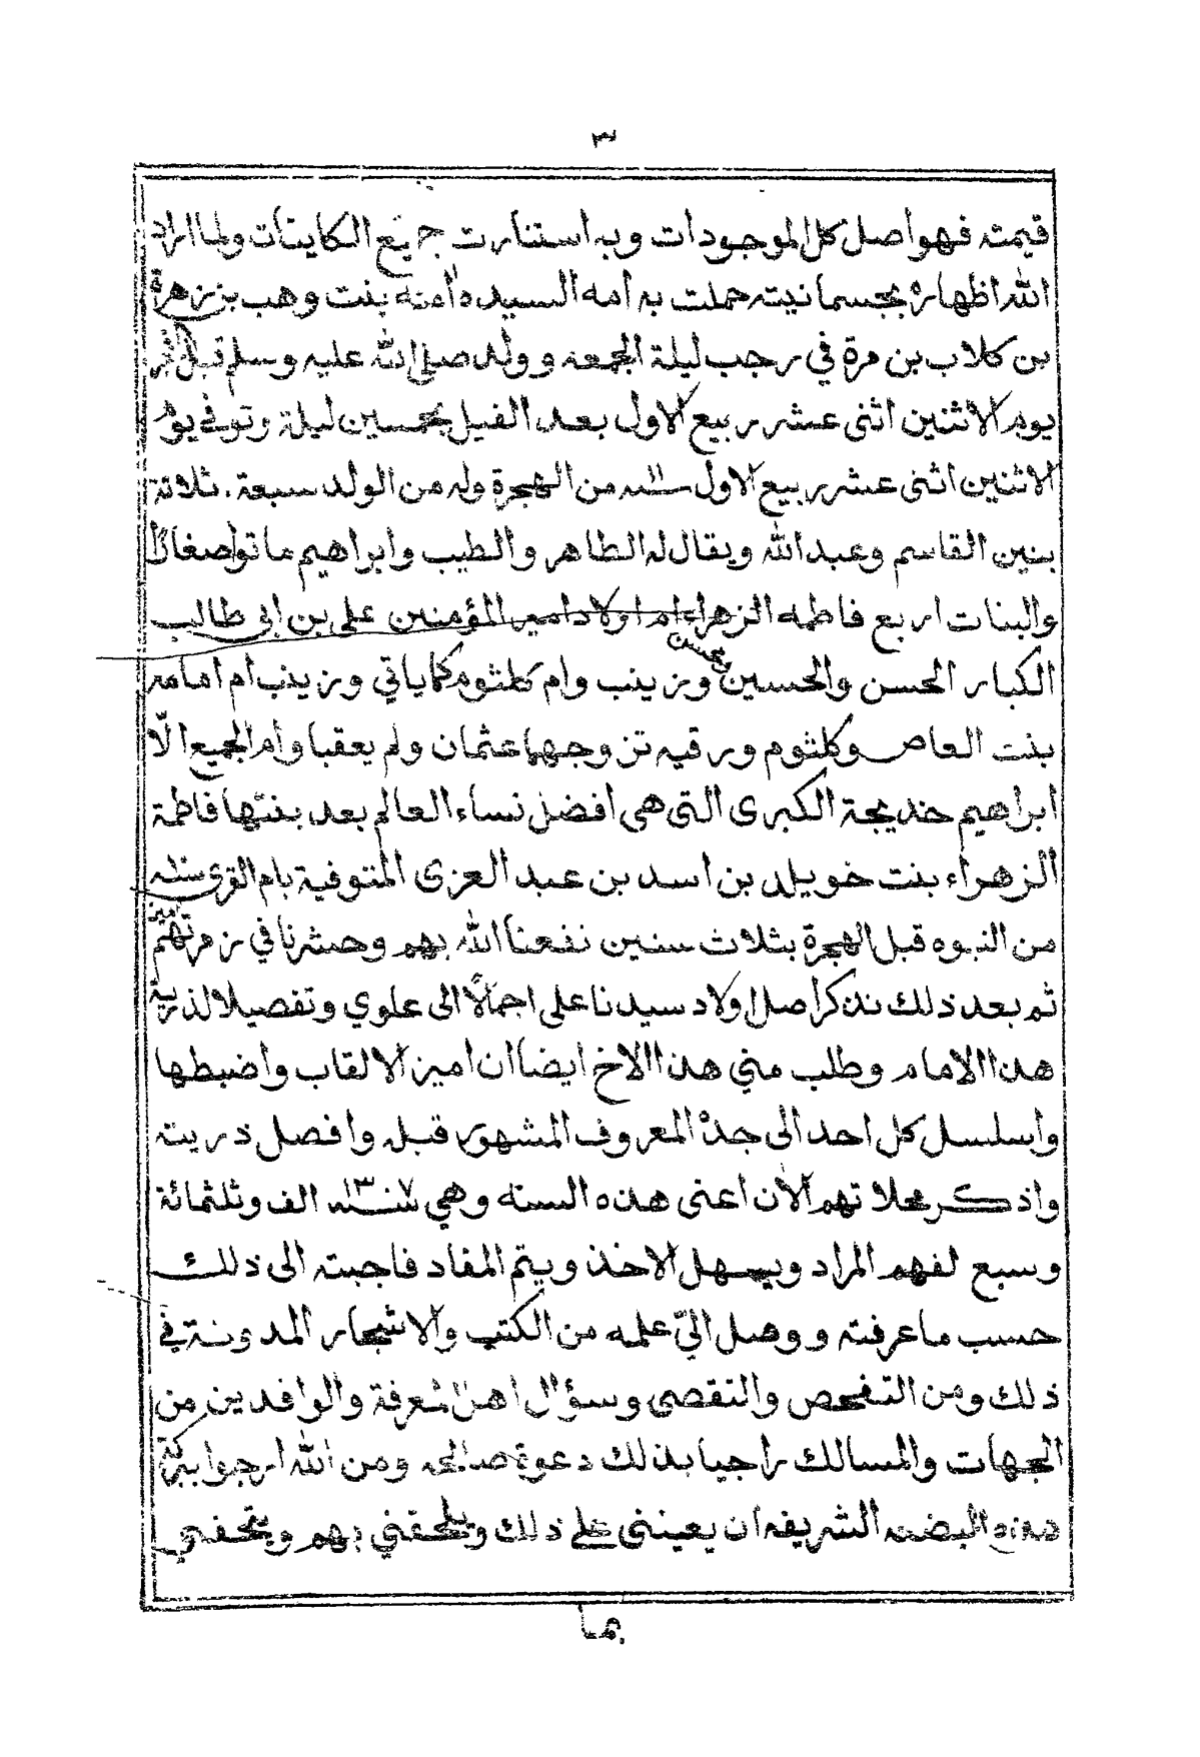 ٣
قيمته فهو اصل كل الموجودات وبه استنارت جميع الكاينات ولما اراد
الله اظهاره بجسمانيته حملت به امه السيده امنه بنت وهب بن زهرة
بن كلاب بن مرة في رجب ليلة الجمعه وولد صلى الله عليه وسلم قبل
يوم الاثنين اثنى عشر ربيع الاول بعد الفيل بخمسين ليلة وتوفي يوم
الاثنين اثنى عشر ربيع الاول سنه ١١ من الهجرة وله من الولد سبعة . ثلاثة
بنين القاسم وعبد الله ويقال له الطاهر والطيب وابراهيم ماتوا صغارا
والبنات اربع فاطمه الزهراء ام اولاد امير المؤمنين علي بن ابي طالب
ومحسن
الكبار الحسن والحسين وزينب وام كلثوم كما ياتي وزينب ام امامه
بنت العاص وكلثوم ورقيه تزوجهما عثمان ولم يعقبا وام الجميع الّا
ابراهيم خديجة الكبرى التى هى افضل نساء العالم بعد بنتها فاطمة
الزهراء بنت خويلد بن اسد بن عبد العزى المتوفية بام القرى سنه
من النبوه قبل الهجرة بثلاث سنين نفعنا الله بهم وحشرنا في زمرتهم امين
ثم بعد ذلك نذكر اصل اولاد سيدنا على اجمالًا الى علوي وتفصيلا لذرية
هذا الامام وطلب مني هذا الاخ ايضا ان اميز الالقاب واضبطها
واسلسل كل احد الى جده المعروف المشهور قبل وافصل ذريته
واذكر محلاتهم الآن اعنى هذه السنه وهي سنه ١٣٠٧ الف وثلثمائة
وسبع لفهم المراد ويسهل الاخذ ويتم المفاد فاجبته الى ذلك
حسب ما عرفته ووصل اليّ علمه من الكتب والاشجار المدونة في
ذلك ومن التفحص والتقصى وسؤال اهل المعرفة والوافدين من
الجهات والمسالك راجيا بذلك دعوة صالحه ومن الله ارجوا ببركة
هذه البضعه الشريفه ان يعينني على ذلك ويلحقني بهم ويتحفني
بما